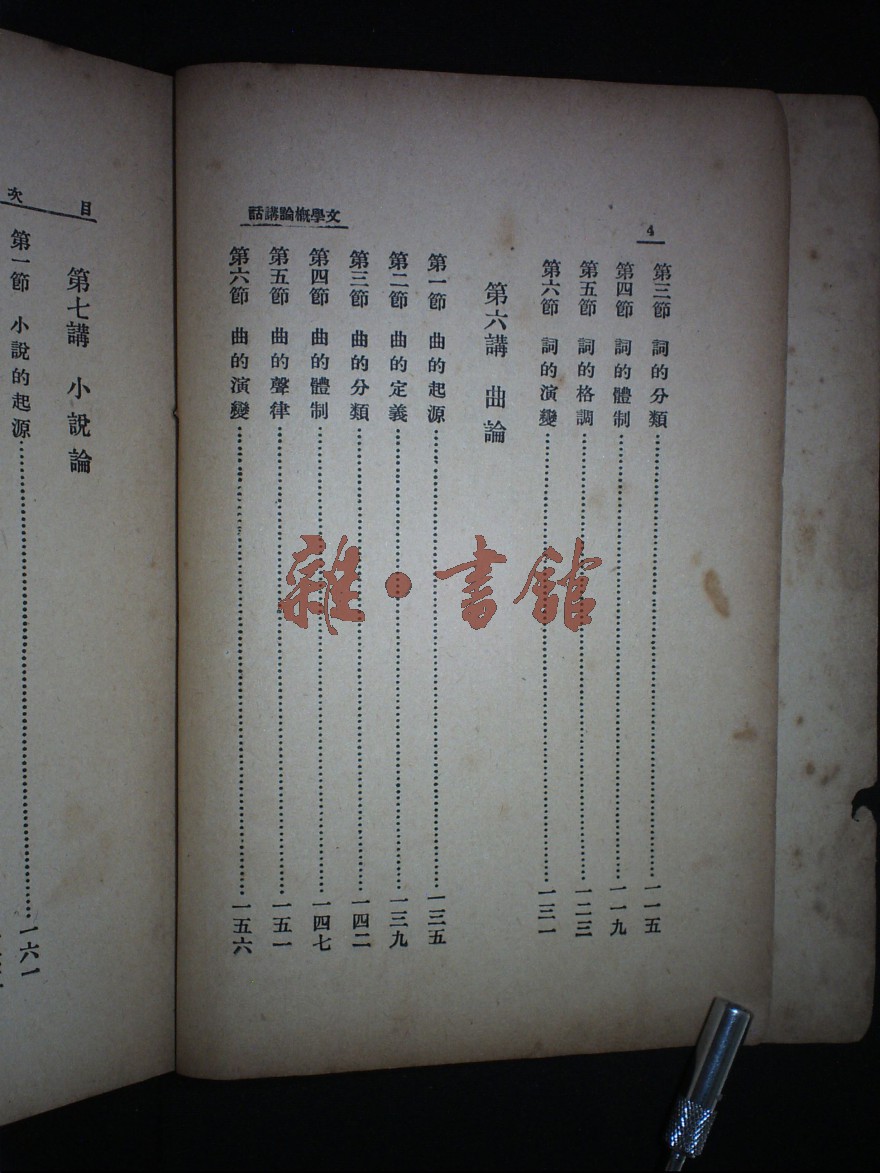 4
文學概論講話
第三節 詞的分類……一一五
第四節 詞的體制……一一九
第五節 詞的格調……一二三
第六節 詞的演變……一三一
第六講 曲論
第一節 曲的起源……一三五
第二節 曲的定義……一三九
第三節 曲的分類……一四二
第四節 曲的體制……一四七
第五節 曲的聲律……一五一
第六節 曲的演變……一五六
目次
第七講 小說論
第一節 小說的起源……一六一
雜·書館